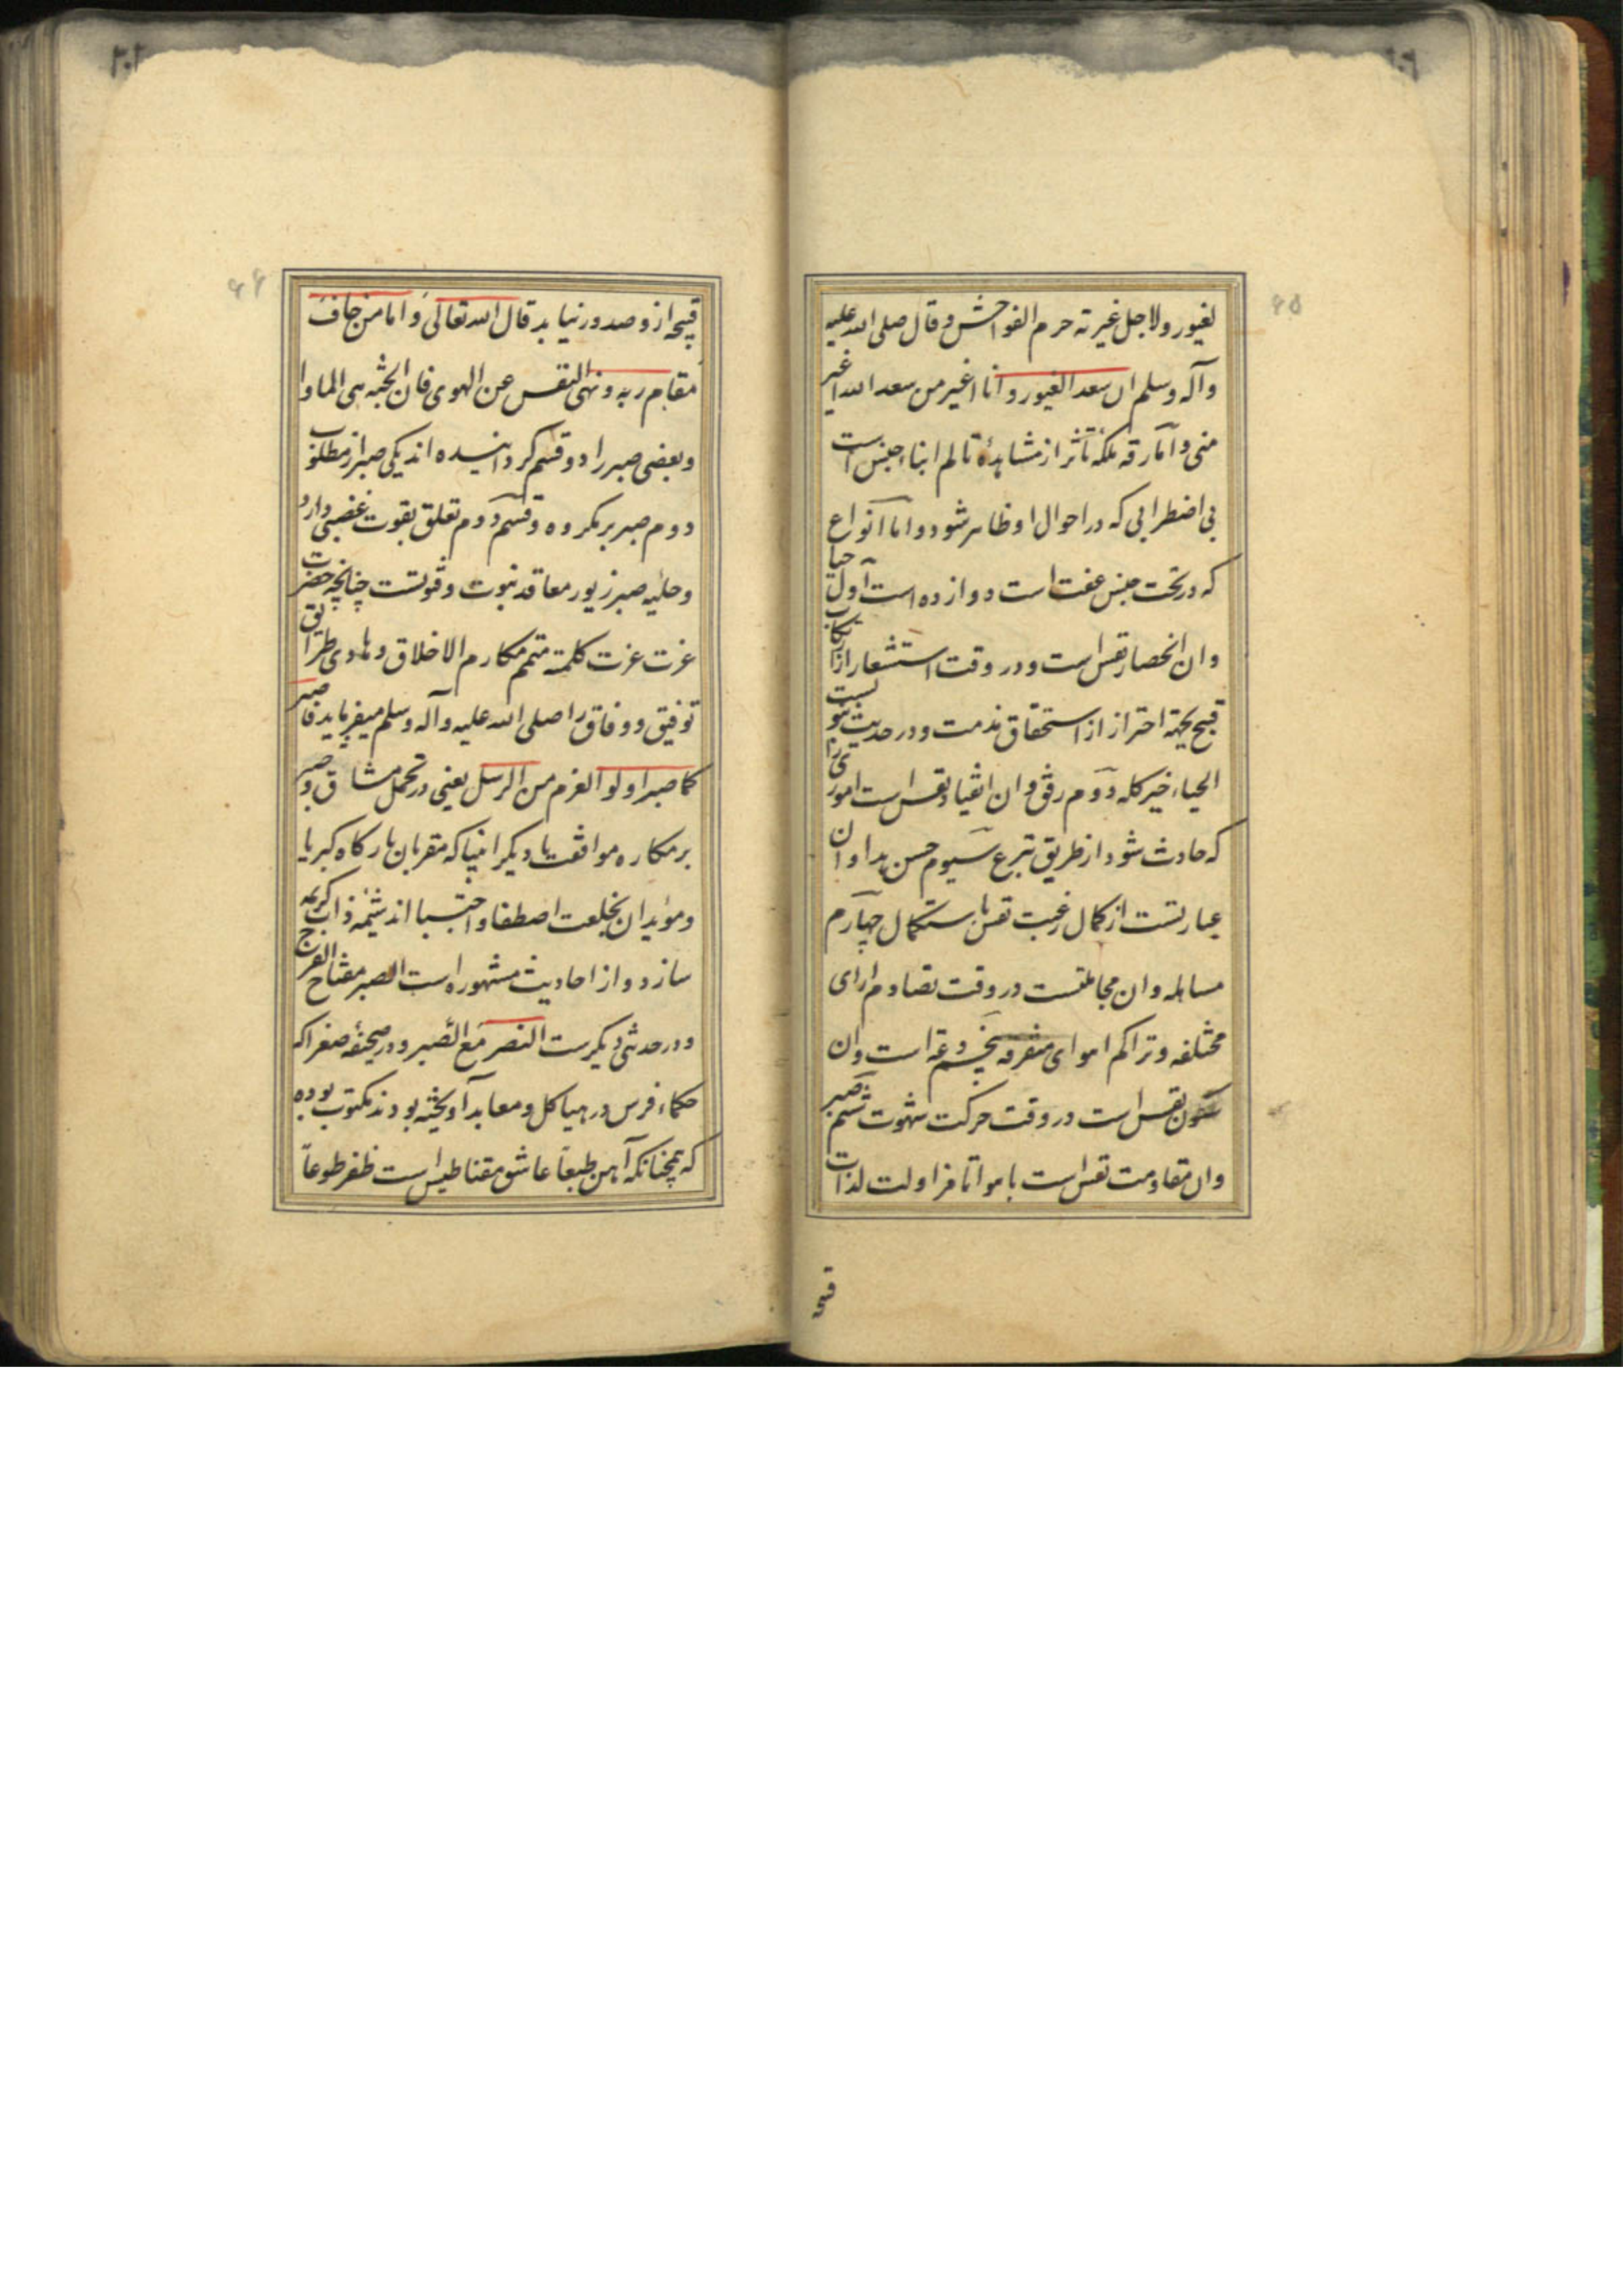 لغیور ولاجل غیرته حرم الفواحش وقال صلی الله علیه
وآله وسلم ان سعد الغیور وانا اغیر من سعد الله اغیر
منی واما رقه ملکه تأثر از مشاهدهٔ تالم ابناء جنس است
بی اضطرابی که در احوال او ظاهر شود واما انواع
که در تحت جنس عفت است دوازده است اول حیا
وان انحصار نفس است در وقت استشعار از ارتکاب
قبیح بجهة احتراز از استحقاق مذمت ودر حدیث نبویست
الحیاء خیر کله دوم رفق وان انقیاد نفس است اموری را
که حادث شود از طریق تبرع سیوم حسن هدا وان
عبارتست از کمال رغبت نفس باستکمال چهارم
مساهله وان مجاملتست در وقت تصادم ارای
مختلفه وتراکم اهوای متفرقه پنجم دعة است وان
سکون نفس است در وقت حرکت شهوت ششم صبر
وان مقاومت نفس است با هوا تا مزاولت لذات
قبیحه
قبیحه ازو صدور نیابد قال الله تعالی واما من خاف
مقام ربه ونهی النفس عن الهوی فان الجنه هی الماوا
وبعضی صبر را دو قسم کردانیده اند یکی صبر از مطلوب
دوم صبر بر مکروه وقسم دوم تعلق بقوت غضبی دارد
وحلیه صبر زیور معاقد نبوت وفتوتست چنانچه حضرت
عزت عزت کلمته متمم مکارم الاخلاق وهادی طرایق
توفیق ووفاق را صلی الله علیه وآله وسلم میفرماید فاصبر
کما صبر اولوا العزم من الرسل یعنی در تحمل مشاق وصبر
بر مکاره موافقت با دیکر انبیا که مقربان بارکاه کبریا
ومؤیدان بخلعت اصطفا واجتبا اند شیمه ذات کریمه
سازد واز احادیث مشهوره است الصبر مفتاح الفرج
ودر حدیثی دیکرست النصر مع الصبر ودر صحیفه صغرا که
حکماء فرس در هیاکل ومعابد آویخته بودند مکتوب بوده
که همچنانکه آهن طبعاً عاشق مقناطیس است ظفر طوعاً